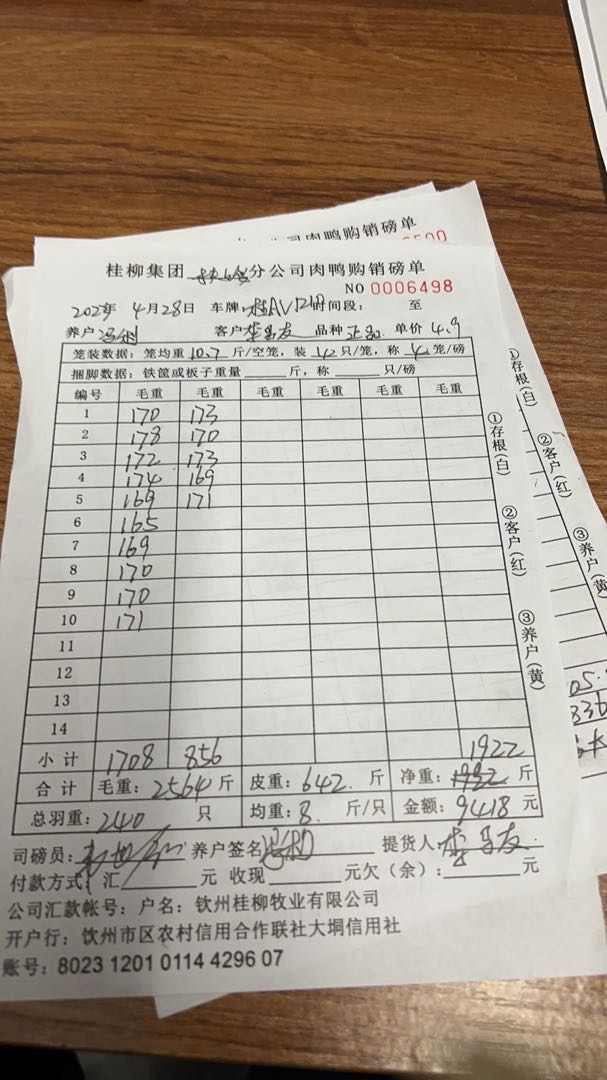 司肉鸭购销磅单
6500
桂柳集团 分公司肉鸭购销磅单
NO 0006498
2025年 4月28日 车牌: 桂AV 时间段: 至
养户 客户 李昌友 品种 正品 单价 4.9
笼装数据: 笼均重 10.7 斤/空笼, 装 12 只/笼, 称 4 笼/磅
捆脚数据: 铁筐或板子重量 斤, 称 只/磅
编号 毛重 毛重 毛重 毛重 毛重 毛重
1 170 173
2 178 170
3 172 173
4 174 169
5 169 171
6 165
7 169
8 170
9 170
10 171
11
12
13
14
小计 1708 856 1922
合计 毛重: 2564 斤 皮重: 642. 斤 净重: 斤
总羽重: 240 只 均重: 8. 斤/只 金额: 9418 元
司磅员: 养户签名 提货人: 李昌友
付款方式: 汇 元 收现 元欠(余): 元
公司汇款帐号: 户名: 钦州桂柳牧业有限公司
开户行: 钦州市区农村信用合作联社大垌信用社
账号: 8023 1201 0114 4296 07
①存根(白) ②客户(红) ③养户(黄)
①存根(白) ②客户(红) ③养户(黄
05.
836